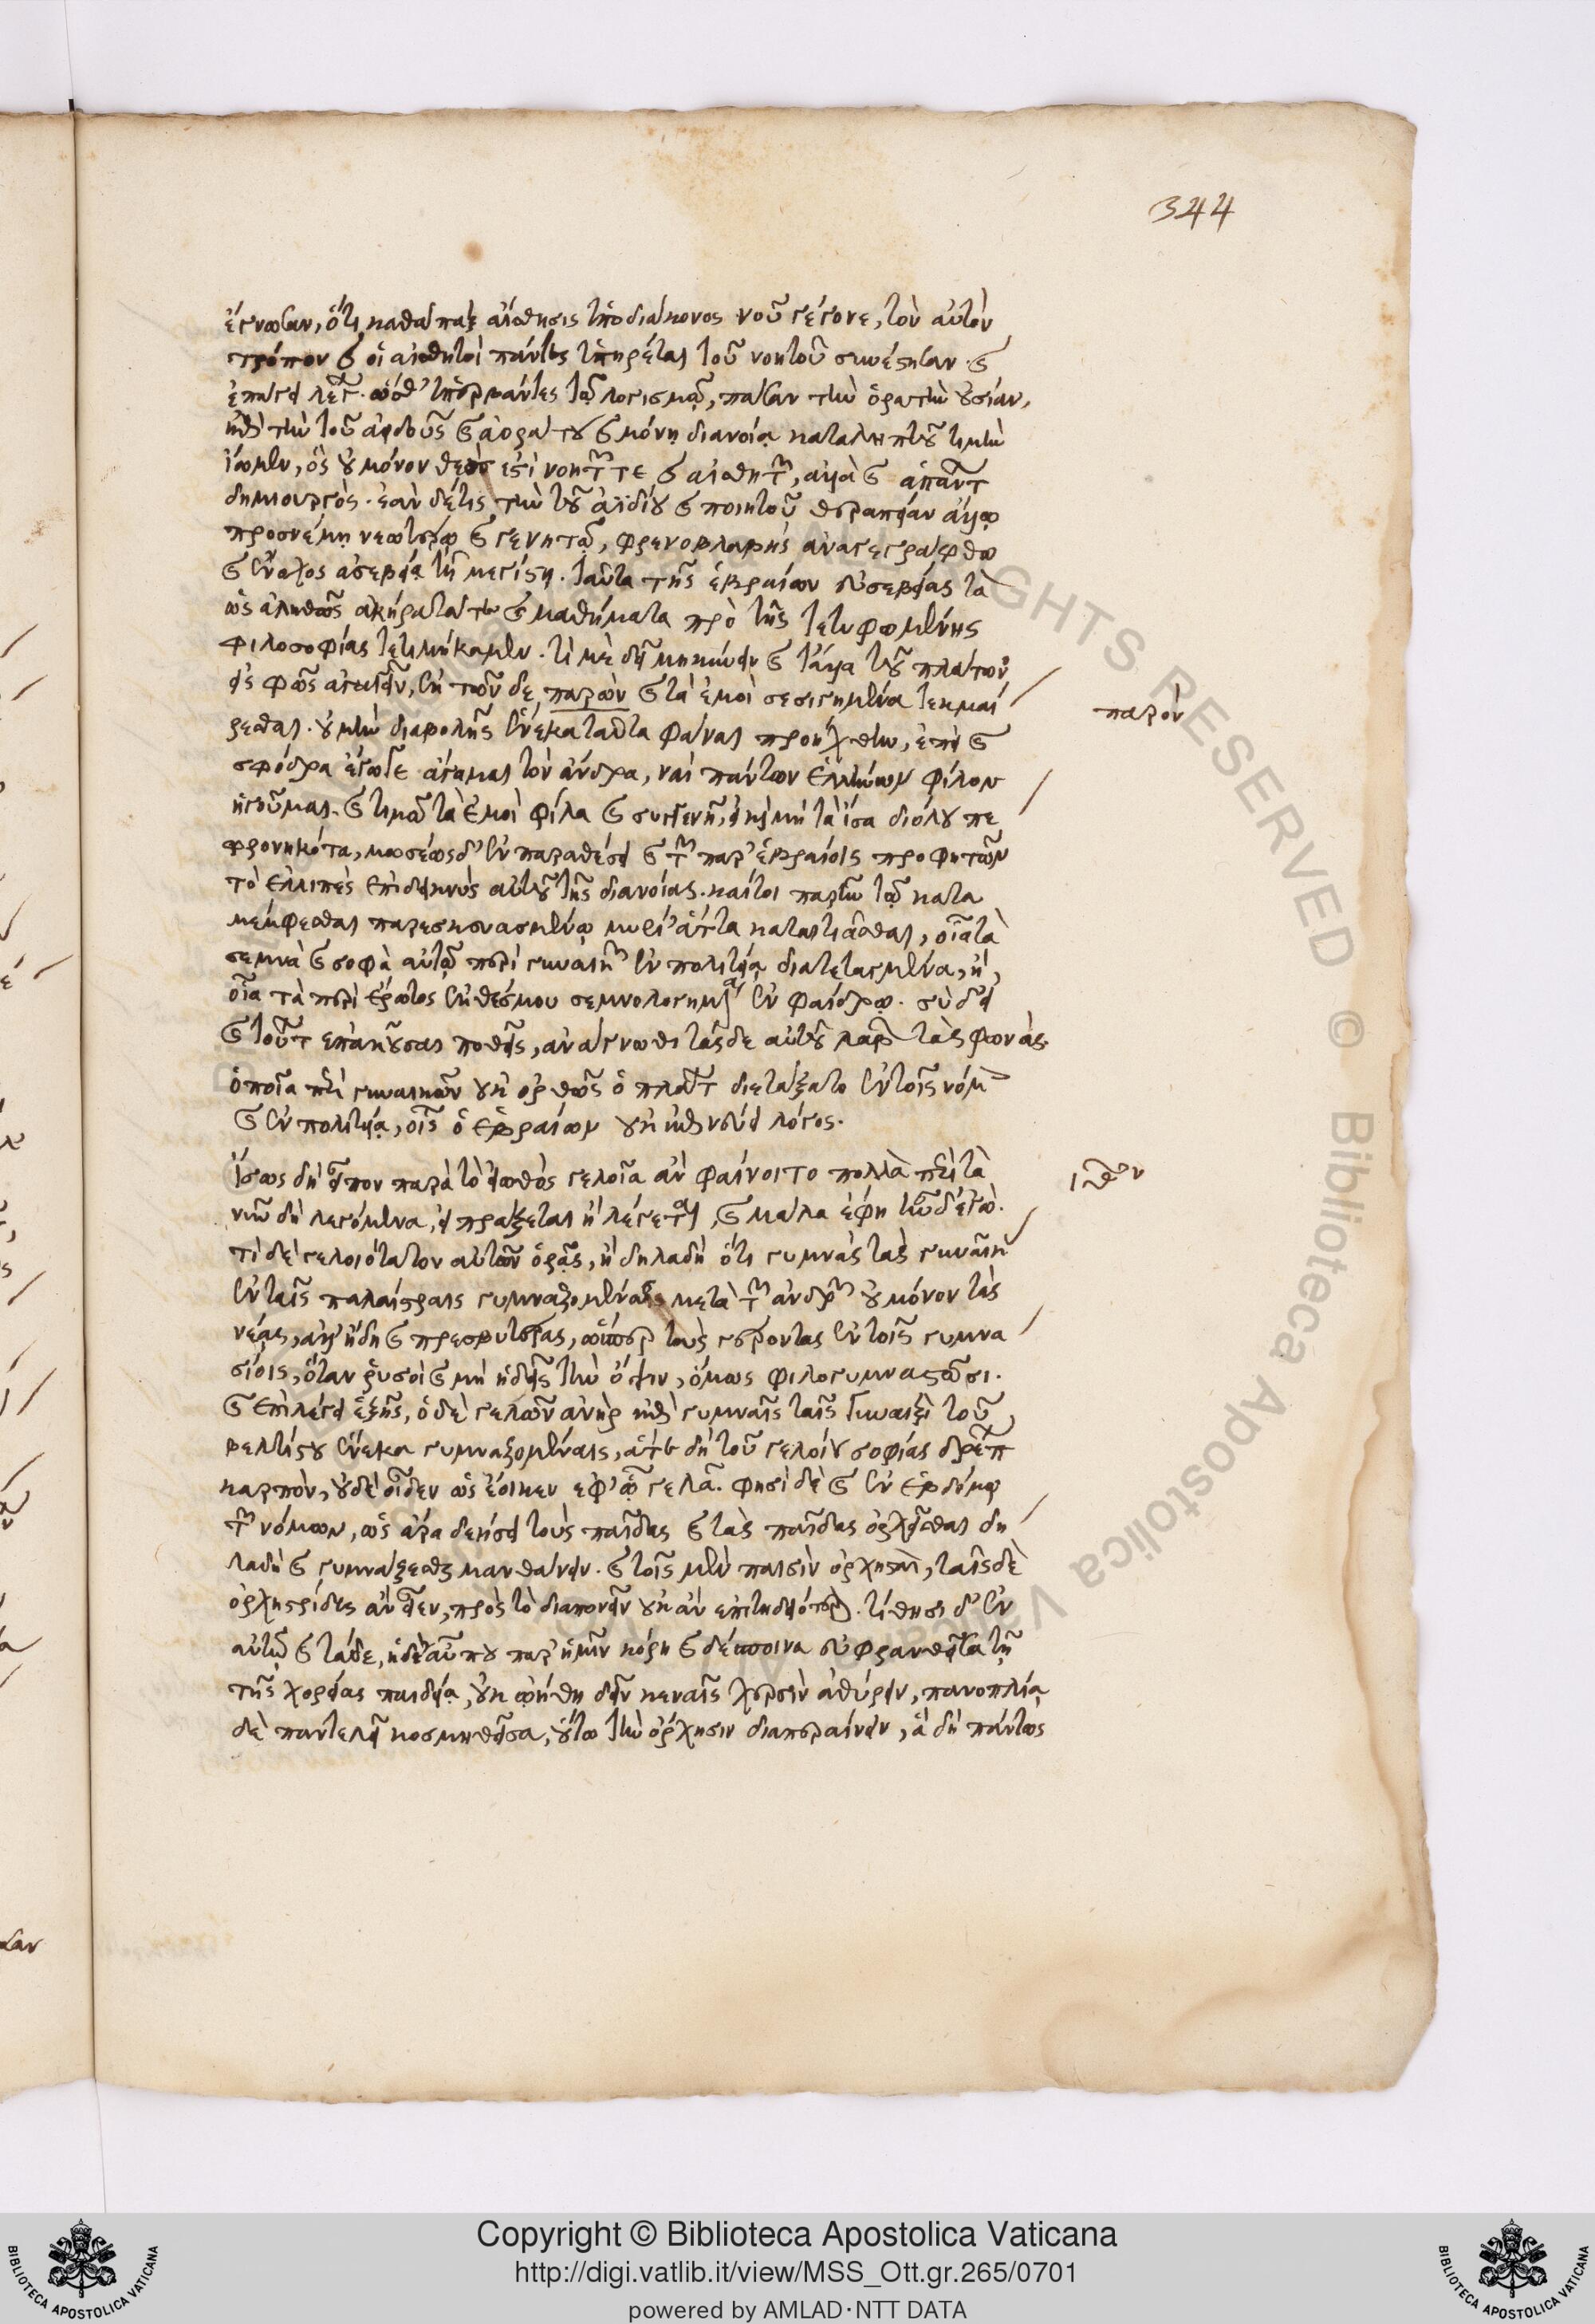 344
ἔγνωσαν, ὅτι καθάπαξ αἴσθησις ὑποδιάκονος νοῦ γέγονε, τὸν αὐτὸν
τρόπον καὶ οἱ αἰσθητοὶ πάντες ὑπηρέται τοῦ νοητοῦ συνέστησαν. καὶ
ἐπάγει λέγων. ὥσθ' ὑπερβάντες τῷ λογισμῷ, πᾶσαν τὴν ὁρατὴν οὐσίαν,
ἐπὶ τὴν τοῦ ἀειδοῦς καὶ ἀοράτου καὶ μόνῃ διανοίᾳ καταληπτοῦ τιμὴν
ἴωμεν, ὃς οὐ μόνον θεὸς ἐστὶ νοητῶν τε καὶ αἰσθητῶν, ἀλλὰ καὶ ἁπάντων
δημιουργός. ἐὰν δέ τις τὴν τοῦ ἀϊδίου καὶ ποιητοῦ θεραπείαν ἄλλῳ
προσνέμῃ νεωτέρῳ καὶ γενητῷ, φρενοβλαβὴς ἀναγεγράφθω
καὶ ἔνοχος ἀσεβείᾳ τῇ μεγίστῃ. ταῦτα τῆς ἑβραίων εὐσεβείας τὰ
ὡς ἀληθῶς ἀκήρατά τε καὶ μαθήματα πρὸ τῆς τετυφωμένης
φιλοσοφίας τετιμήκαμεν. τί με δεῖ μηκύνειν καὶ τἄλλα τοῦ πλάτωνος
εἰς φῶς ἄγειν, ἐκ τῶνδε παρὼν καὶ τὰ ἐμοὶ σεσιγημένα τεκμαί
ρεσθαι. οὐ μὴν διαβολῆς ἕνεκα ταῦτα φάναι προήχθην, ἐπεὶ καὶ
σφόδρα ἔγωγε ἄγαμαι τὸν ἄνδρα, ναὶ πάντων ἑλλήνων φίλον
ἡγοῦμαι. καὶ τιμῶ τὰ ἐμοὶ φίλα καὶ συγγενῆ, εἰ καὶ μὴ τὰ ἴσα διόλου πε
φρονηκότα, μωσέως δ' ἐν παραθέσει καὶ τῶν παρ' ἑβραίοις προφητῶν
τὸ ἐλλιπὲς ἐπιδεικνὺς αὐτοῦ τῆς διανοίας. καίτοι παρῆν τῷ κατα
μέμφεσθαι παρεσκευασμένῳ μυρί' ἄττα καταιτιᾶσθαι, οἷα τὰ
σεμνὰ καὶ σοφὰ αὐτῷ περὶ γυναικῶν ἐν πολιτείᾳ διατεταγμένα, ἢ,
οἷα τὰ περὶ ἔρωτος ἐκθέσμου σεμνολογημένα ἐν φαίδρῳ. σὺ δ' εἰ
καὶ τούτων ἐπακοῦσαι ποθεῖς, ἀνάγνωθι τάσδε αὐτοῦ λαβὼν τὰς φωνάς.
ὁποῖα περὶ γυναικῶν οὐκ ὀρθῶς ὁ πλάτων διετάξατο ἐν τοῖς νόμοις
καὶ ἐν πολιτείᾳ, οἷς ὁ ἑβραίων οὐκ ἐπινεύει λόγος.
ἴσως δὴ εἶπον παρὰ τὸ εἰωθὸς γελοῖα ἂν φαίνοιτο πολλὰ περὶ τὰ
νῦν δὴ λεγόμενα, εἰ πράξεται ᾗ λέγεται, καὶ μάλα ἔφη
τί δὲ γελοιότατον αὐτῶν ὁρᾷς, ἢ δηλαδὴ ὅτι γυμνὰς τὰς γυναῖκας
ἐν ταῖς παλαίστραις γυμναζομένας μετὰ τῶν ἀνδρῶν οὐ μόνον τὰς
νέας, ἀλλ' ἤδη καὶ πρεσβυτέρας, ὥσπερ τοὺς γέροντας ἐν τοῖς γυμνα
σίοις, ὅταν ῥυσοὶ καὶ μὴ ἡδεῖς τὴν ὄψιν, ὅμως φιλογυμναστῶσι.
καὶ ἐπιλέγει ἑξῆς, ὁ δὲ γελῶν ἀνὴρ ἐπὶ γυμναῖς ταῖς γυναιξὶ τοῦ
βελτίστου ἕνεκα γυμναζομέναις, ἀτελῆ τοῦ γελοίου σοφίας δρέπων
καρπόν, οὐδὲ οἶδεν ὡς ἔοικεν ἐφ' ᾧ γελᾷ. φησὶ δὲ καὶ ἐν ἑβδόμῳ
τῶν νόμων, ὡς ἄρα δεήσει τοὺς παῖδας καὶ τὰς παῖδας ὀρχεῖσθαι δη
λαδὴ καὶ γυμνάζεσθαι μανθάνειν. καὶ τοῖς μὲν παισὶν ὀρχησταὶ, ταῖς δὲ
ὀρχηστρίδες ἂν εἶεν, πρὸς τὸ διαπονεῖν οὐκ ἀνεπιτηδειότερον. τίθησι δ' ἐν
αὐτῷ καὶ τάδε, ἡ δὲ αὖ που παρ' ἡμῖν κόρη καὶ δέσποινα εὐφρανθεῖσα τῇ
τῆς χορείας παιδείᾳ, οὐκ ᾠήθη δεῖν κεναῖς χερσὶν ἀθύρειν, πανοπλίᾳ
δὲ παντελεῖ κοσμηθεῖσα, οὕτω τὴν ὄρχησιν διαπεραίνειν, ἃ δὴ πάντως
παρὸν
Copyright © Biblioteca Apostolica Vaticana
http://digi.vatlib.it/view/MSS_Ott.gr.265/0701
powered by AMLAD·NTT DATA